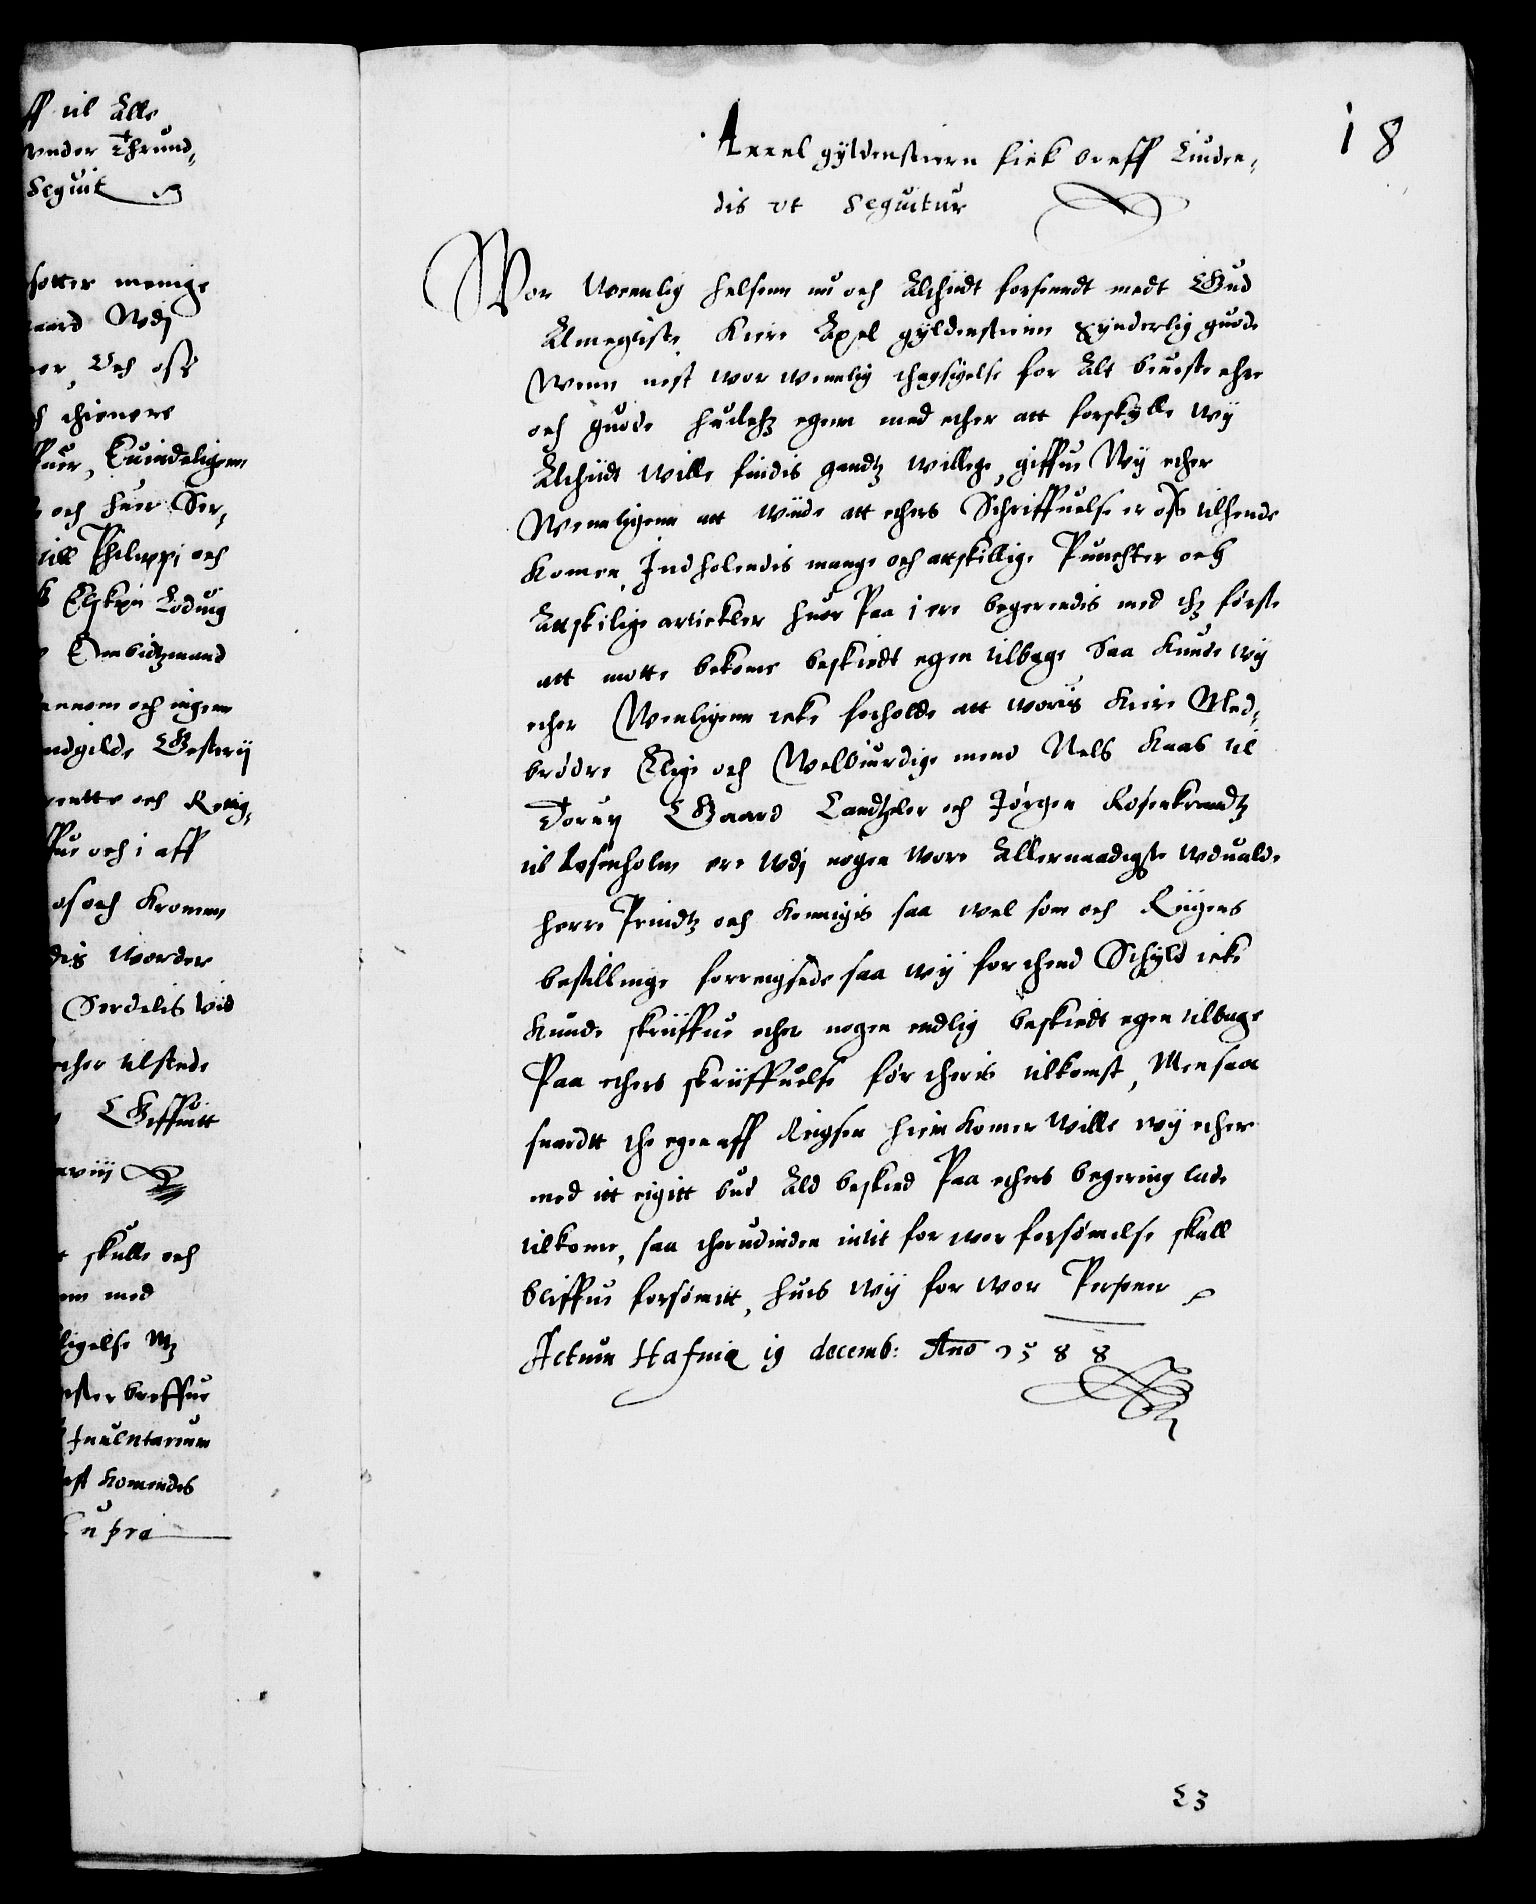 ff til Alle
vnder Thrund,
Seguit
sotter menige
gaard Wdj
ner, Och oss
ch thienere
ffuer, Euindeligenn
och huer Ser,
till Philippi och
Elskpu Loduig
Embidtzmand
annom och ingenn
ndgilde Gesterij
rentte och Retig,
ffue och i aff
os och Kronenn
dis worder
Serdelis vid
ether tilstede
Geffuitt
xxviij
t skulle och
nn med
ligelse Mz
efter breffue
Inuentarium
est komendis
Supra
18
Axeel gyldenstiern fick breff Liuden,
dis vt Sequitur
Wor Wennlig helsenn nu och Altidt forsenndt medt Gud
Almegtiste, Kiere Axel gyldenstiern Synderlig gode
Wenn nest wor wennlig thagsigelse for Alt beuiste ehre
och guode huilchz egenn med ether att forskylle wij
Altidt wille findis gandtz willige, giffue Wij ether
Wennligenn att wiide att ethers Schriffuelse er oss tilhende
Komen, Indholendis mange och attskillige Punchter och
Attskilige artickler huor Paa i ere begerendis med thz første
att motte bekome beskiedt egen tilbage Saa kunde wij
ether Wenligenn icke forholde att woris Kiere Med,
brødre Erlige och Welbiurdige mend Nels Kaas til
Torup Gaard Candtzler och Jørgen Rosenkrandtz
til Rosenholm ere wdj nogen wore Allernaadigste wduolde
herre Prindtz och Konnigis saa wel som och Rigens
bestillinge forreigsede saa wij for thend Schyld icke
kunde skriiffue ether nogen endlig beskiedt egen tilbage
Paa ethers skriiffuelse før theris tilkomst, Men saa
snardtt the egen aff Reigsen hiem komer wille wij ether
med itt eigitt bud Ald besked Paa ethers begering lade
tilkome, saa therudinden intit for wor forsømelse skall
bliffue forsømitt, huis wij for wor Personer
Actum Hafniæ 19 decemb: Ano 1588
E3